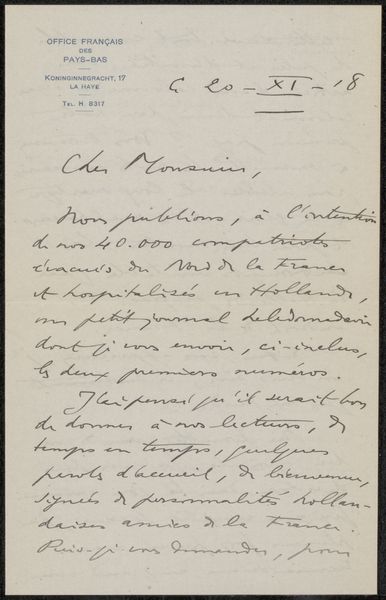 OFFICE FRANÇAIS
DES
PAYS-BAS
KONINGINNEGRACHT, 17
LA HAYE
TEL. H. 8317
le 20 - XI - 18
Cher Monsieur,
Nous publions, à l'intention
de nos 40.000 compatriotes
évacués du Nord de la France
et hospitalisés en Hollande,
un petit journal hebdomadaire
dont je vous envoie, ci-inclus,
les deux premiers numéros.
J'ai pensé qu'il serait bon
de donner à nos lecteurs, de
temps en temps, quelques
paroles d'accueil, de bienvenue,
signées de personnalités hollan-
daises amies de la France.
Puis-je vous demander, pour